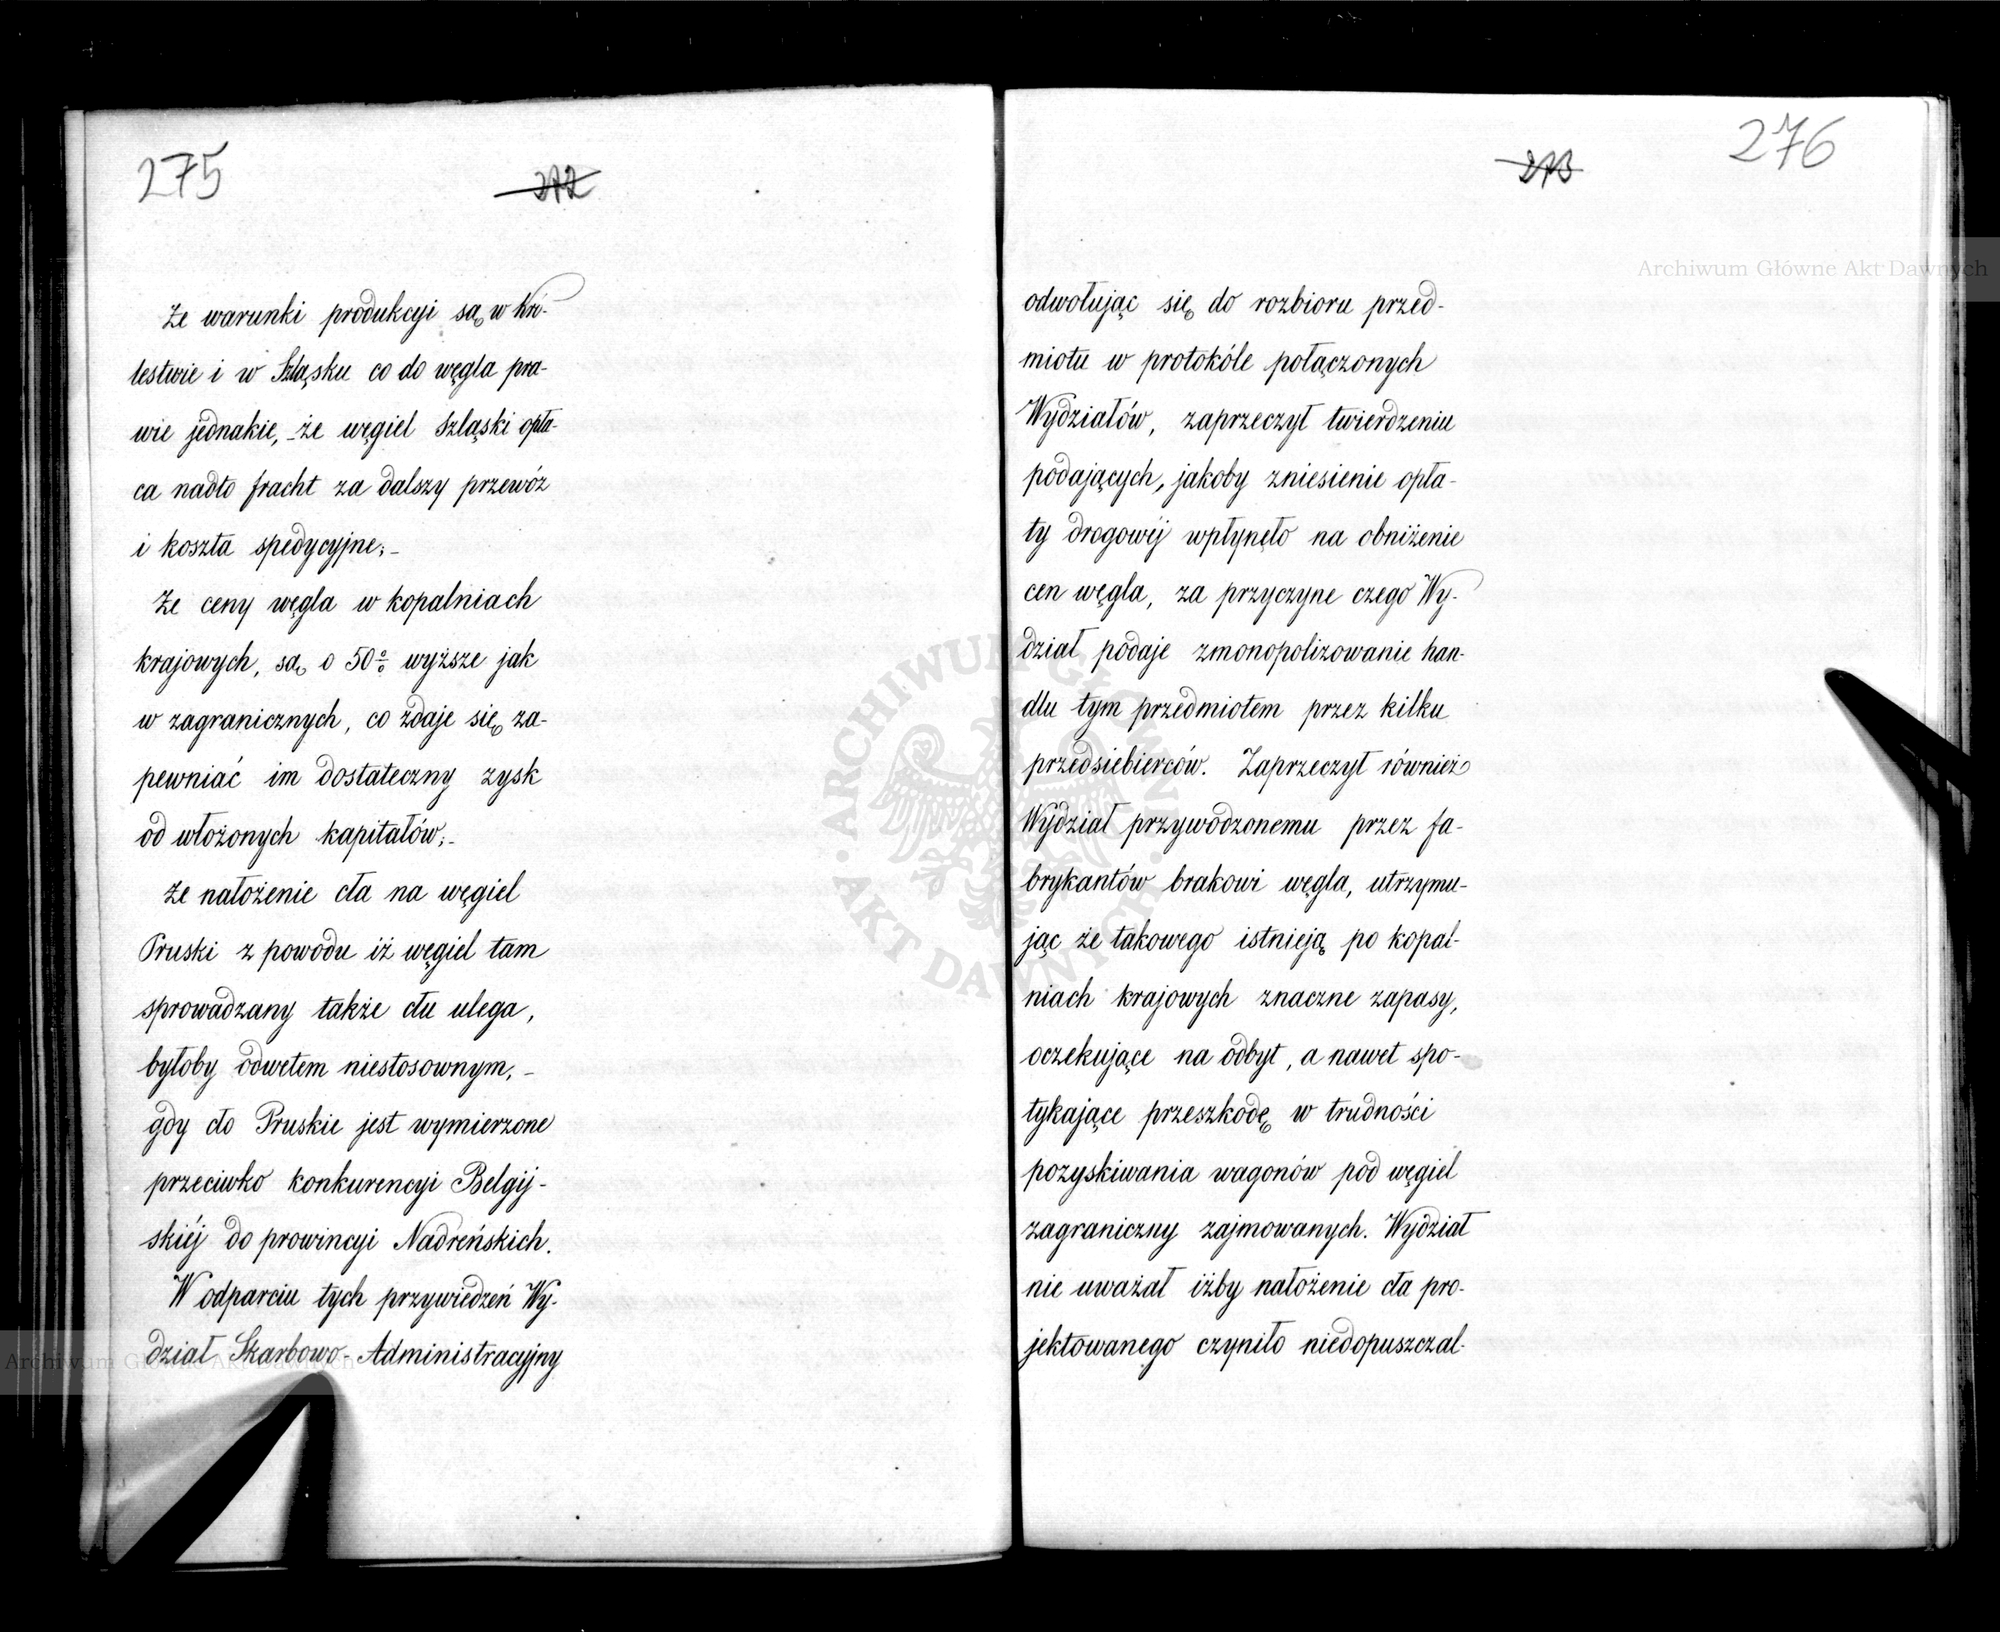 275
272
Że warunki produkcyi są w Kró-
lestwie i w Szląsku co do węgla pra-
wie jednakie, - że węgiel szląski opła-
ca nadto fracht za dalszy przewóz
i koszta spedycyjne; -
Że ceny węgla w kopalniach
krajowych, są o 50% wyższe jak
w zagranicznych, co zdaje się za-
pewniać im dostateczny zysk
od włożonych kapitałów; -
Że nałożenie cła na węgiel
Pruski z powodu iż węgiel tam
sprowadzany także cłu ulega,
byłoby odwetem niestosownym, -
gdy cło Pruskie jest wymierzone
przeciwko konkurencyi Belgij-
skiéj do prowincyi Nadreńskich.
W odparciu tych przywiedzeń Wy-
dział Skarbowo-Administracyjny
276
273
odwołując się do rozbioru przed-
miotu w protokóle połączonych
Wydziałów, zaprzeczył twierdzeniu
podających, jakoby zniesienie opła-
ty drogowéj wpłynęło na obniżenie
cen węgla, za przyczyne czego Wy-
dział podaje zmonopolizowanie han-
dlu tym przedmiotem przez kilku
przedsiebierców. Zaprzeczył również
Wydział przywodzonemu przez fa-
brykantów brakowi węgla, utrzymu-
jąc że takowego istnieją po kopal-
niach krajowych znaczne zapasy,
oczekujące na odbyt, a nawet spo-
tykające przeszkodę w trudności
pozyskiwania wagonów pod węgiel
zagraniczny zajmowanych. Wydział
nie uważał iżby nałożenie cła pro-
jektowanego czyniło niedopuszczal-
Archiwum Główne Akt Dawnych
Archiwum Główne Akt Dawnych
ARCHIWUM GŁÓWNE · AKT DAWNYCH ·